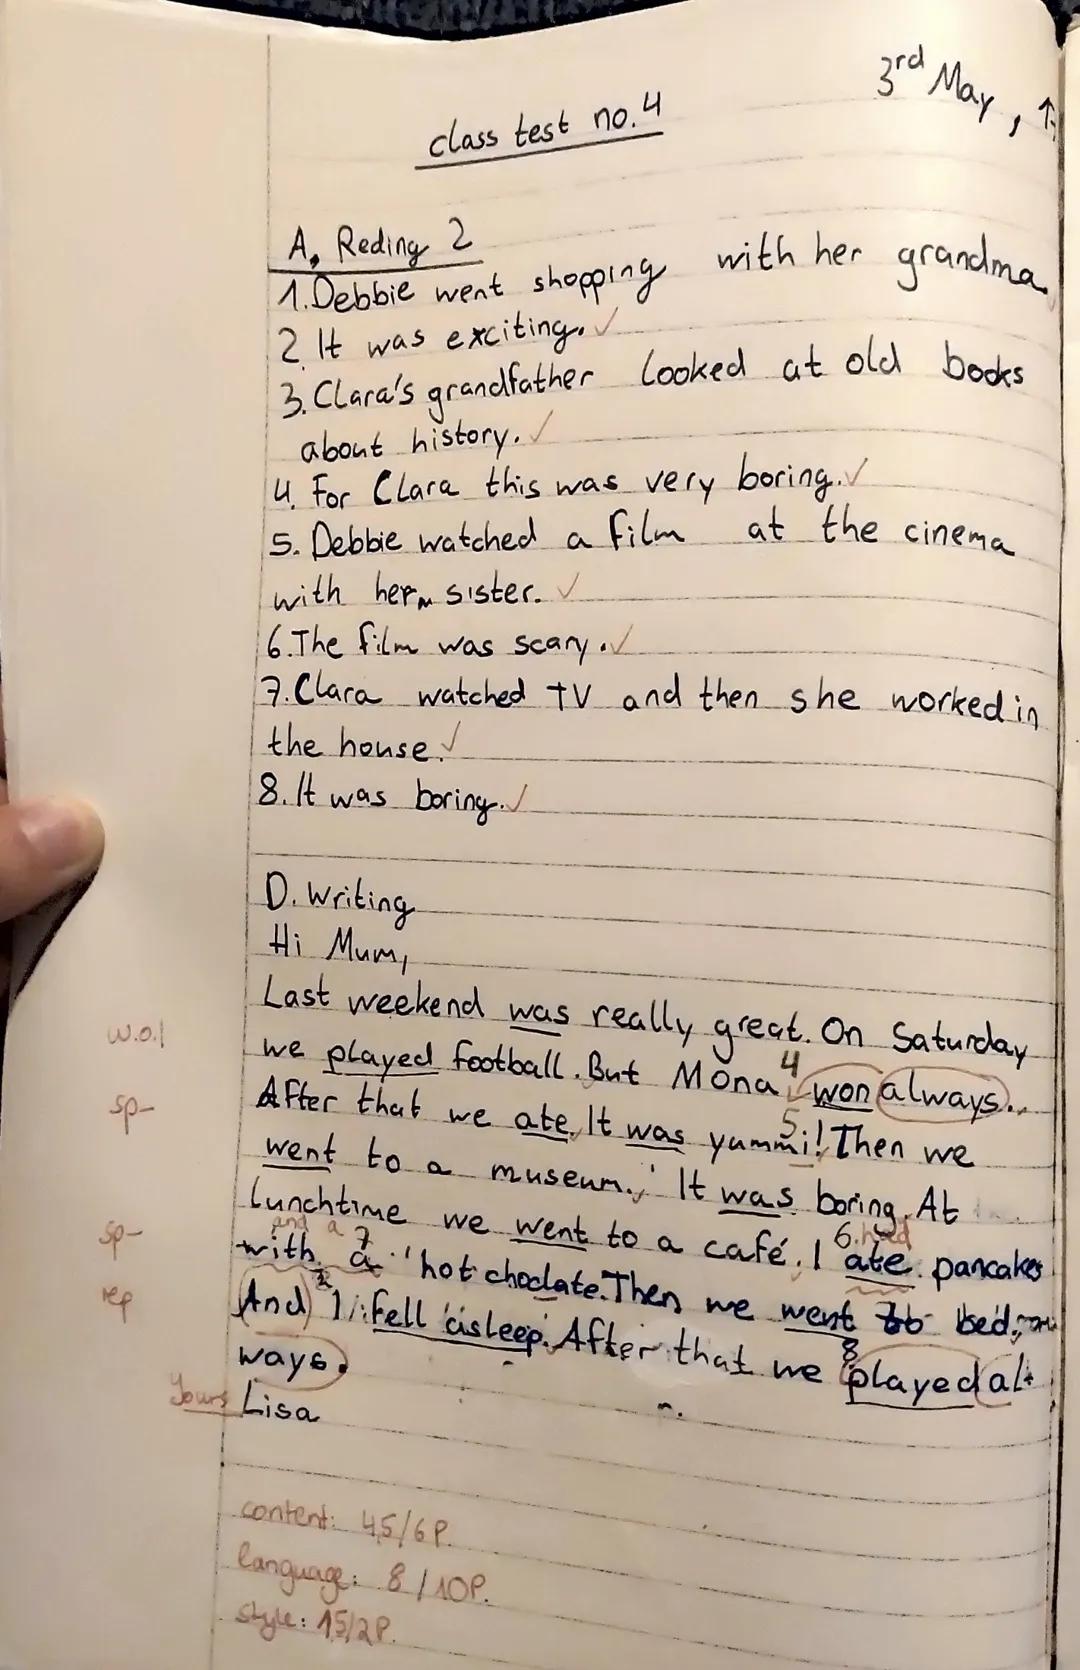 3rd May,
class test no. 4
A, Reding 2
1. Debbie went shopping with her grandma.
2. It was exciting. ✓
3. Clara's grandfather looked at old books
about history. ✓
4. For Clara this was very boring. ✓
5. Debbie watched a film at the cinema
with her sister. ✓
6. The film was scary. ✓
7. Clara watched TV and then she worked in
the house. ✓
8. It was boring. ✓
D. Writing
Hi Mum,
Last weekend was really great. On Saturday
w.o. we played football. But Mona 4 won always.
sp- After that we ate. It was yummi! 5 Then we
went to a museum. It was boring. At
lunchtime we went to a café. I ate pancakes
and a 7 6. had
sp- with a hot choclate. Then we went to bed.
rep And I fell asleep. After that we 8 played al-
ways.
Yours Lisa
content: 4,5/6P.
language: 8/10P.
style: 1,5/2P.